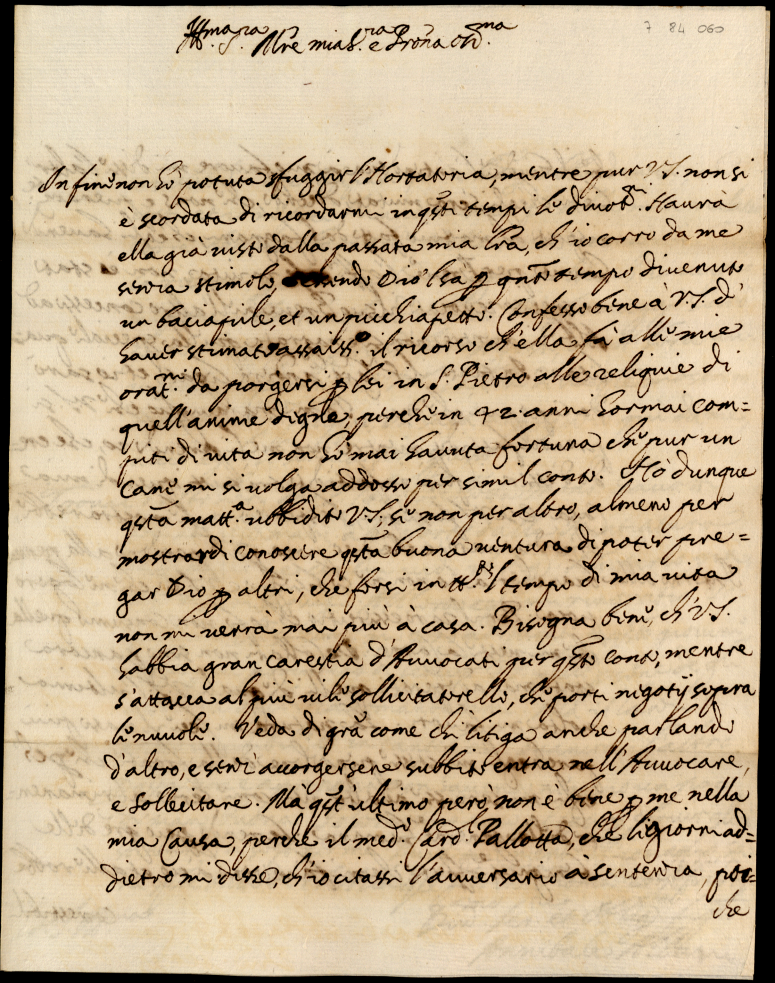 7 84 060
Ill.ma S.ra Mre mia S.ra e Prona Oss.ma
In fine non hò potuta sfuggir l'Hortatoria, mentre pur V.S. non si
è scordata di ricordarmi in qsti tempi le divot.ni. Haurà
ella già visto dalla passata mia lra, ch'io corro da me
senza stimolo, essendo Dio lsa p qnto tempo divenuto
un baciapile, et un picchiapetto. Confesso bene à V.S. d'
haver stimato assaiss.o il ricorso ch'ella fà alle mie
orat.ni da porgersi p lei in S. Pietro alle reliquie di
quell'anime degne, perche in 42 anni hormai com=
piti di vita non hò mai havuta fortuna che pur un
Cane mi si volga addosso per simil conto. Hò dunque
qsta matt.a ubbidito V.S., se non per altro, almeno per
mostrar di conoscere qsta buona ventura di poter pre=
gar Dio p altri, che forsi in tt.o 'l tempo di mia vita
non mi verrà mai più à casa. Bisogna bene, ch'V.S.
habbia gran carestia d'Avvocati per qsto conto, mentre
s'attacca al più vile sollicitatorello, che porti negotij sopra
le nuvole. Veda di gra come chi litiga anche parlando
d'altro, e senz'accorgersene subbito entra nell'Avvocare,
e Sollecitare. Mà qst'ultimo però, non è bene p me nella
mia Causa, perche il med.o Card. Pallotta, che li giorni ad=
dietro mi disse, ch'io citassi l'avversario à sentenza, poi=
che